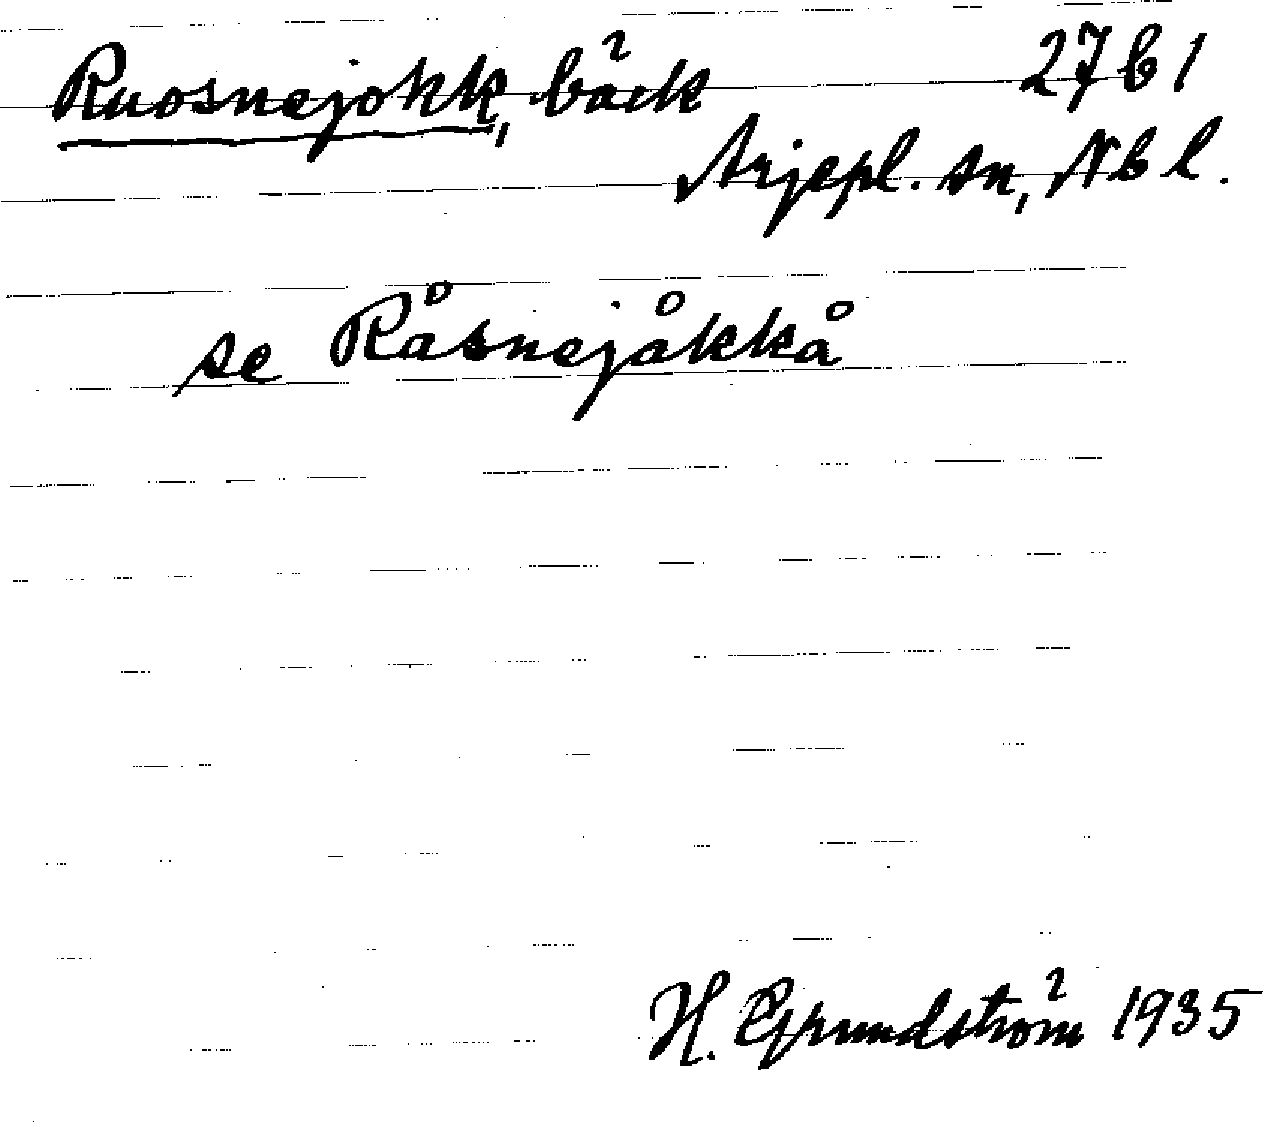 Ruosnejokk, bäck 27b1
Arjepl. sn, Nbl.
se Råsnejåkkå
H. Grundström 1935